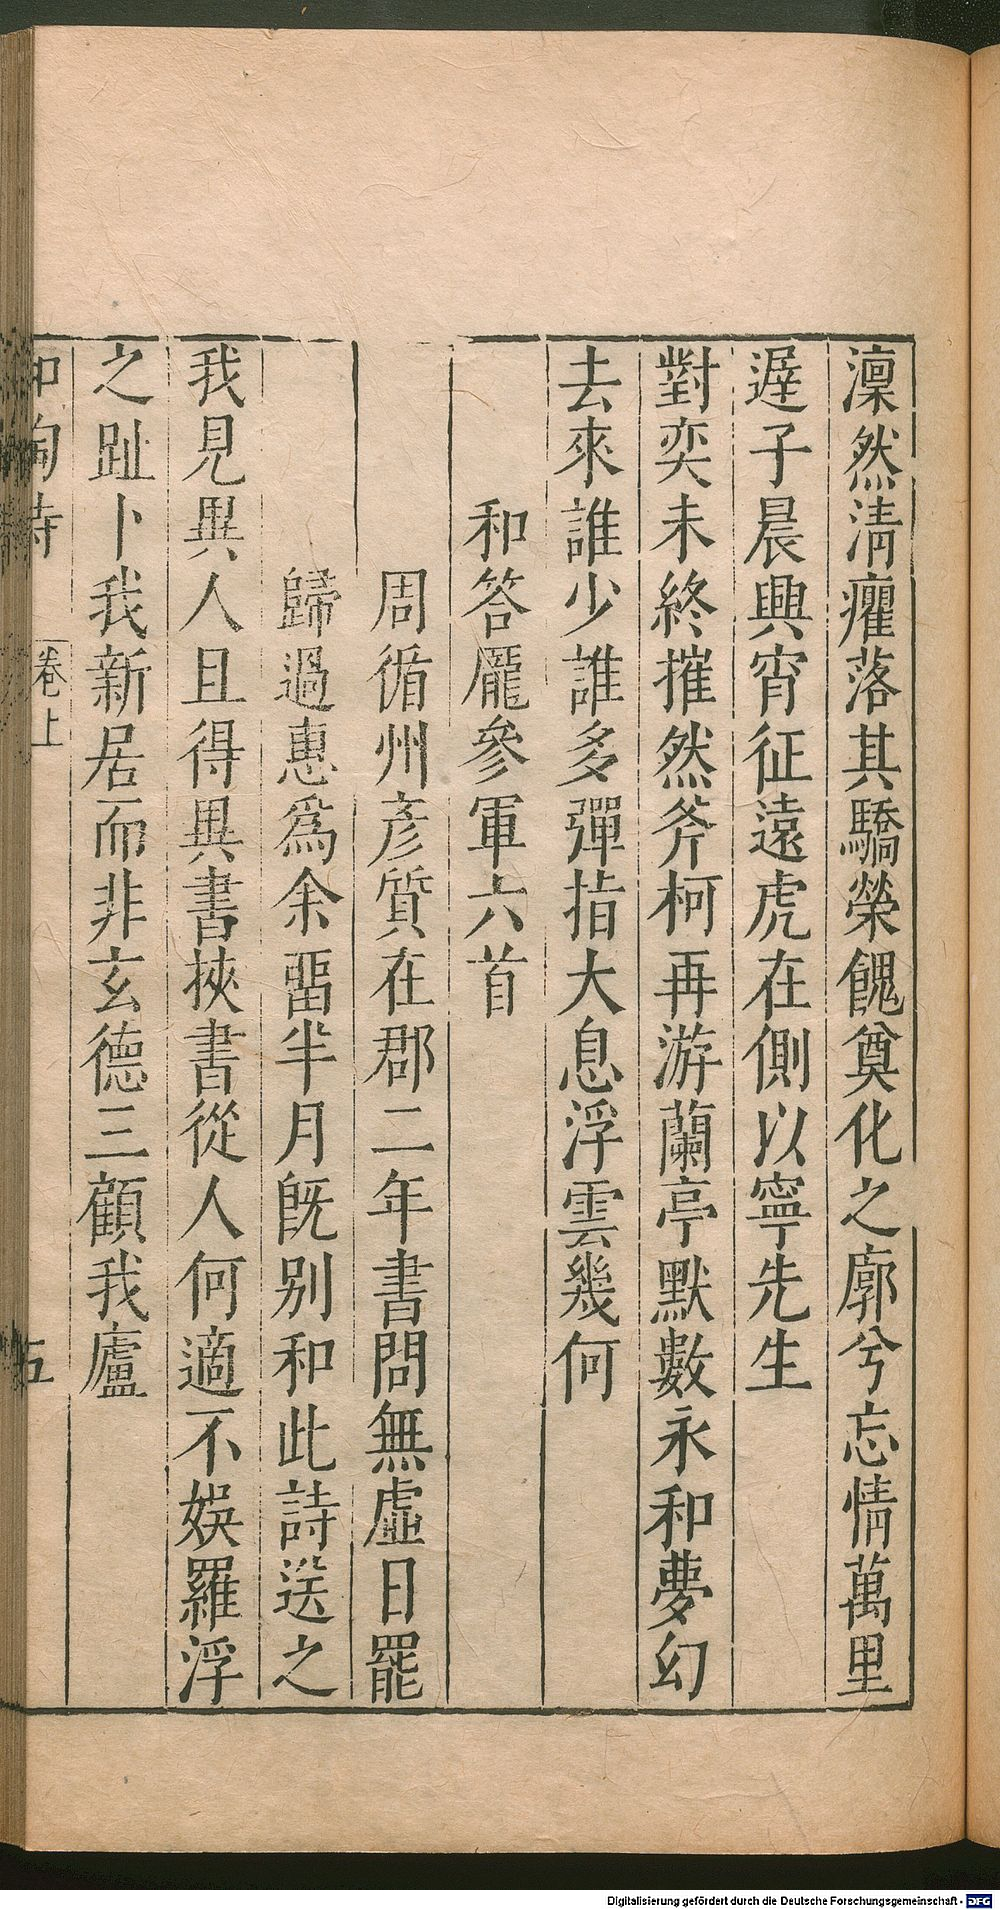 凜然清癯落其驕榮餽奠化之廓兮忘情萬里
遲子晨興宵征遠虎在側以寧先生
對奕未終摧然斧柯再游蘭亭默數永和夢幻
去來誰少誰多彈指大息浮雲幾何
和答龐參軍六首
周循州彥質在郡二年書問無虛日罷
歸過惠爲余畱半月旣別和此詩送之
我見異人且得異書挾書從人何適不娛羅浮
之趾卜我新居而非玄德三顧我廬
和陶詩 卷上 五
Digitalisierung gefördert durch die Deutsche Forschungsgemeinschaft - DFG